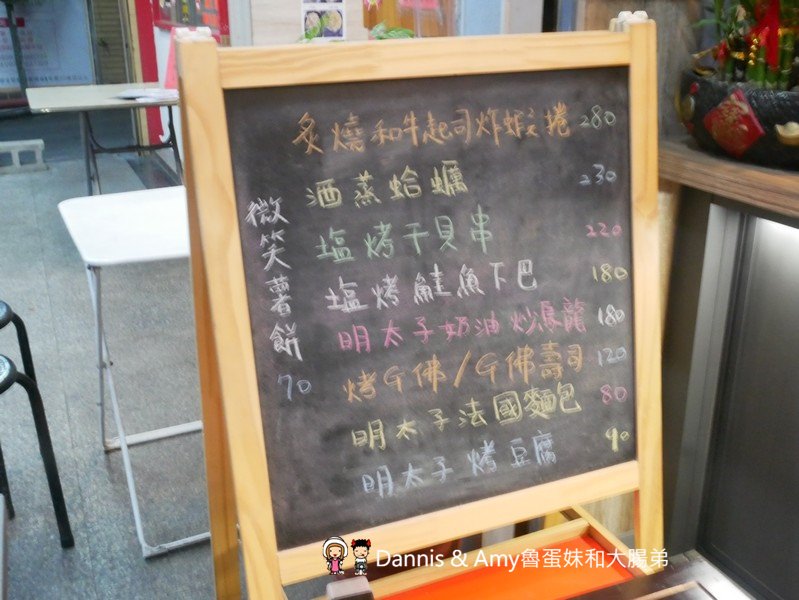 炙燒和牛起司炸蝦捲 280
酒蒸蛤蠣 230
塩烤干貝串 220
塩烤鮭魚下巴 180
明太子奶油炒烏龍 180
烤千佛/千佛壽司 120
明太子法國麵包 80
明太子烤豆腐 90
微笑薯餅
70
Dannis & Amy魯蛋妹和大腸弟